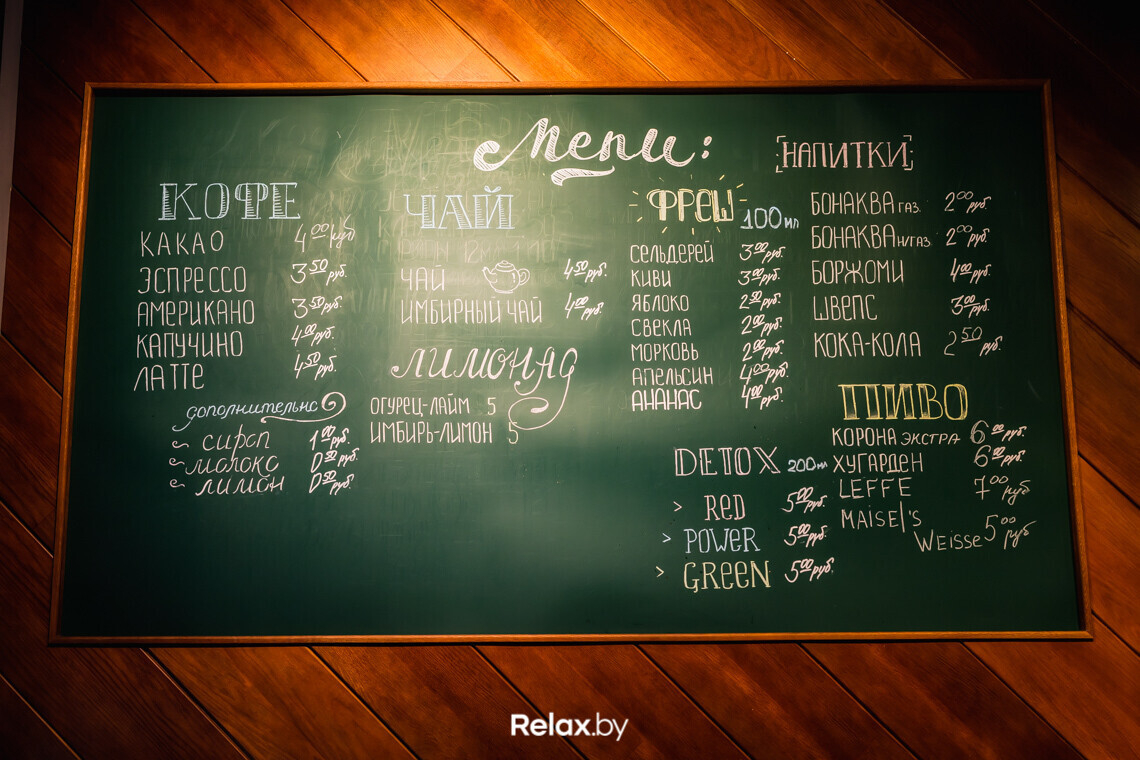 Menu:
КОФЕ
КАКАО 4 00 руб
ЭСПРЕССО 3 50 руб.
АМЕРИКАНО 3 50 руб.
КАПУЧИНО 4 00 руб.
ЛАТТЕ 4 50 руб.
дополнительно
сироп 1 00 руб.
молоко 0 50 руб.
лимон 0 50 руб.
ЧАЙ
ЧАЙ 4 50 руб.
ИМБИРНЫЙ ЧАЙ 4 00 руб.
ЛИМОНАД
ОГУРЕЦ-ЛАЙМ 5
ИМБИРЬ-ЛИМОН 5
ФРЕШ 100 мл
СЕЛЬДЕРЕЙ 3 00 руб.
КИВИ 3 00 руб.
ЯБЛОКО 2 50 руб.
СВЕКЛА 2 00 руб.
МОРКОВЬ 2 00 руб.
АПЕЛЬСИН 4 00 руб.
АНАНАС 4 00 руб.
DETOX 200 мл
> RED 5 00 руб.
> POWER 5 00 руб.
> GREEN 5 00 руб.
[НАПИТКИ]
БОНАКВА ГАЗ. 2 00 руб.
БОНАКВА Н/ГАЗ. 2 00 руб.
БОРЖОМИ 4 00 руб.
ШВЕПС 3 00 руб.
КОКА-КОЛА 2 50 руб.
ПИВО
КОРОНА ЭКСТРА 6 00 руб.
ХУГАРДЕН 6 00 руб.
LEFFE 7 00 руб
MAISEL'S
WEISSE 5 00 руб
Relax.by